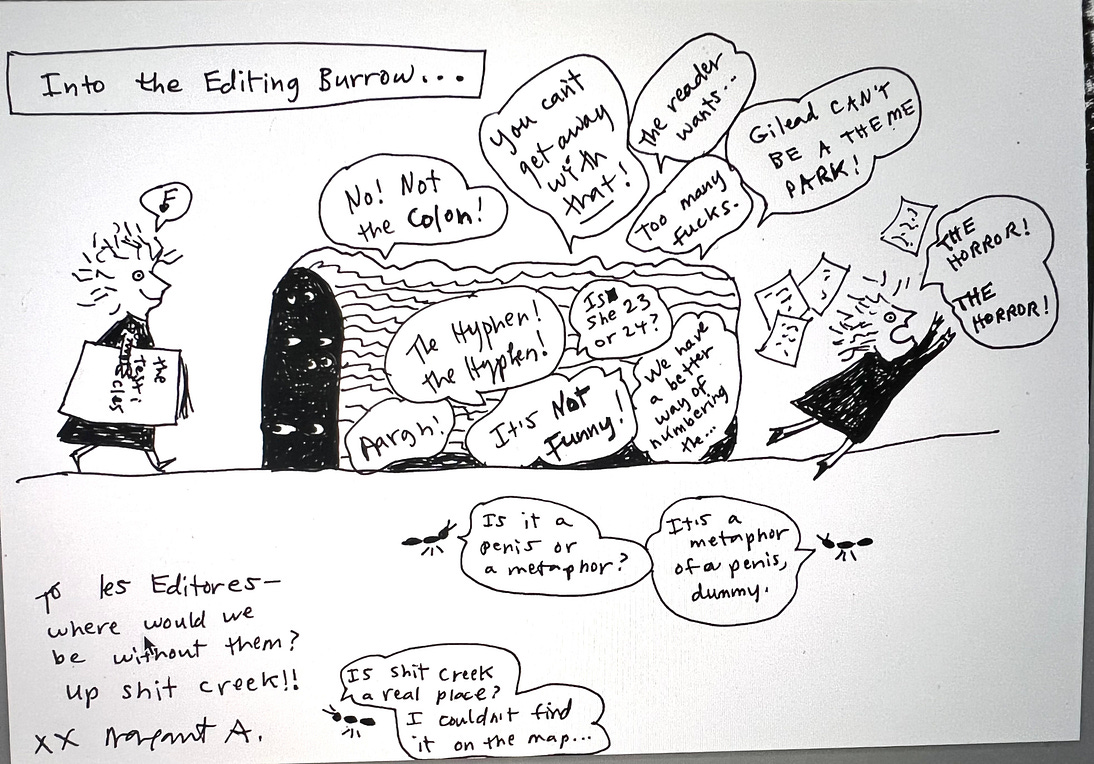 Into the Editing Burrow...
E
No! Not
the Colon!
You can't
get away
with
that!
the reader
wants...
Gilead CAN'T
BE A THEME
PARK!
Too many
fucks.
THE
HORROR!
THE
HORROR!
the
Testi
cles
The Hyphen!
the Hyphen!
Is
she 23
or 24?
We have
a better
way of
numbering
the...
Aargh!
It's Not
Funny!
Is it a
penis or
a metaphor?
It's a
metaphor
of a penis,
dummy.
To les Editores—
where would we
be without them?
up shit creek!!
xx Margaret A.
Is shit creek
a real place?
I couldn't find
it on the map...